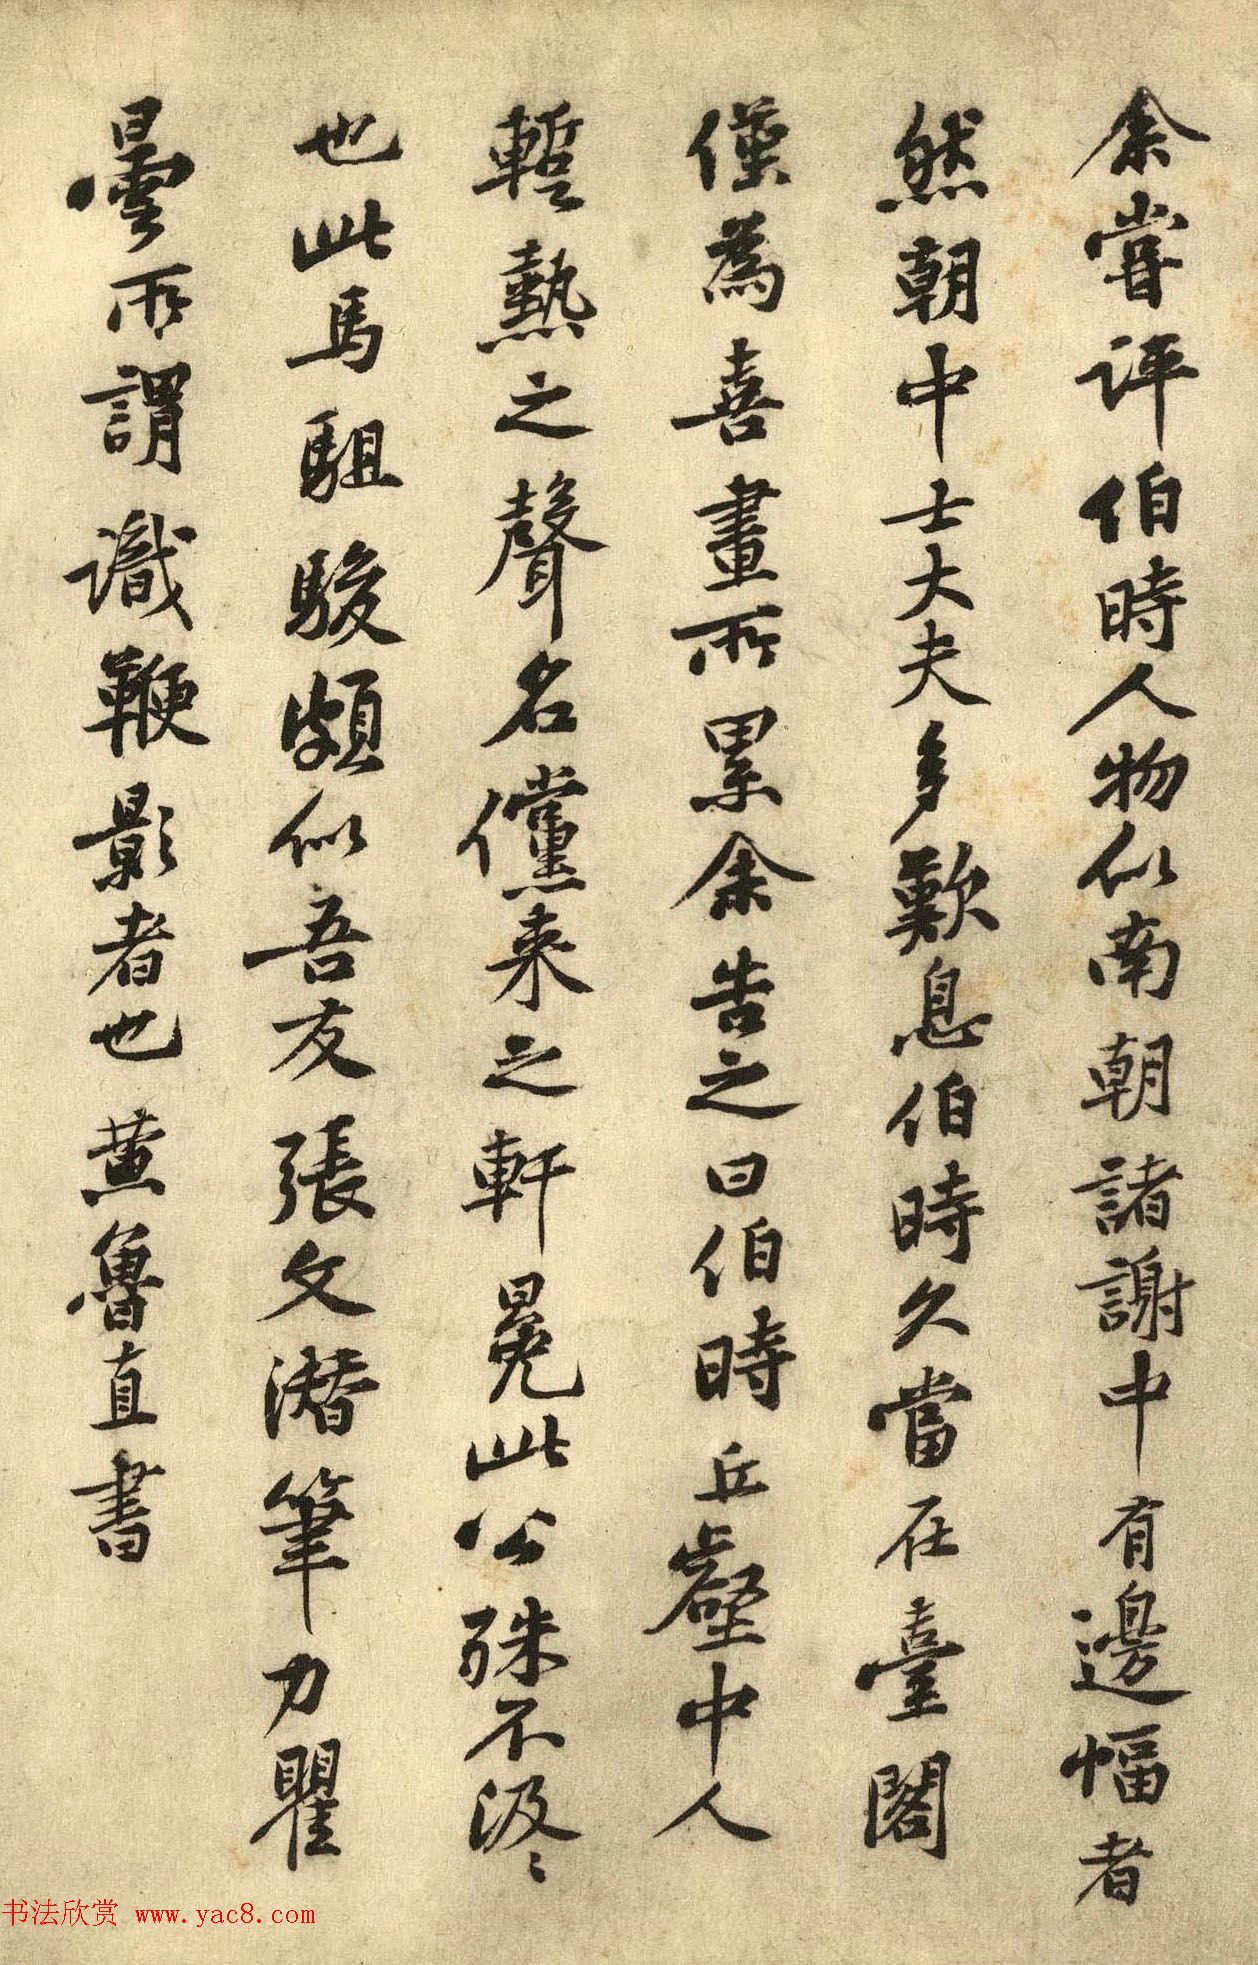 余嘗評伯時人物似南朝諸謝中有邊幅者
然朝中士大夫多歎息伯時久當在臺閣
僅為喜畫所累余告之曰伯時丘壑中人
蹔熱之聲名儻来之軒冕此公殊不汲〻
也此馬駔駿頗似吾友張文潛筆力瞿
曇所謂識鞭影者也黄魯直書
书法欣赏 www.yac8.com